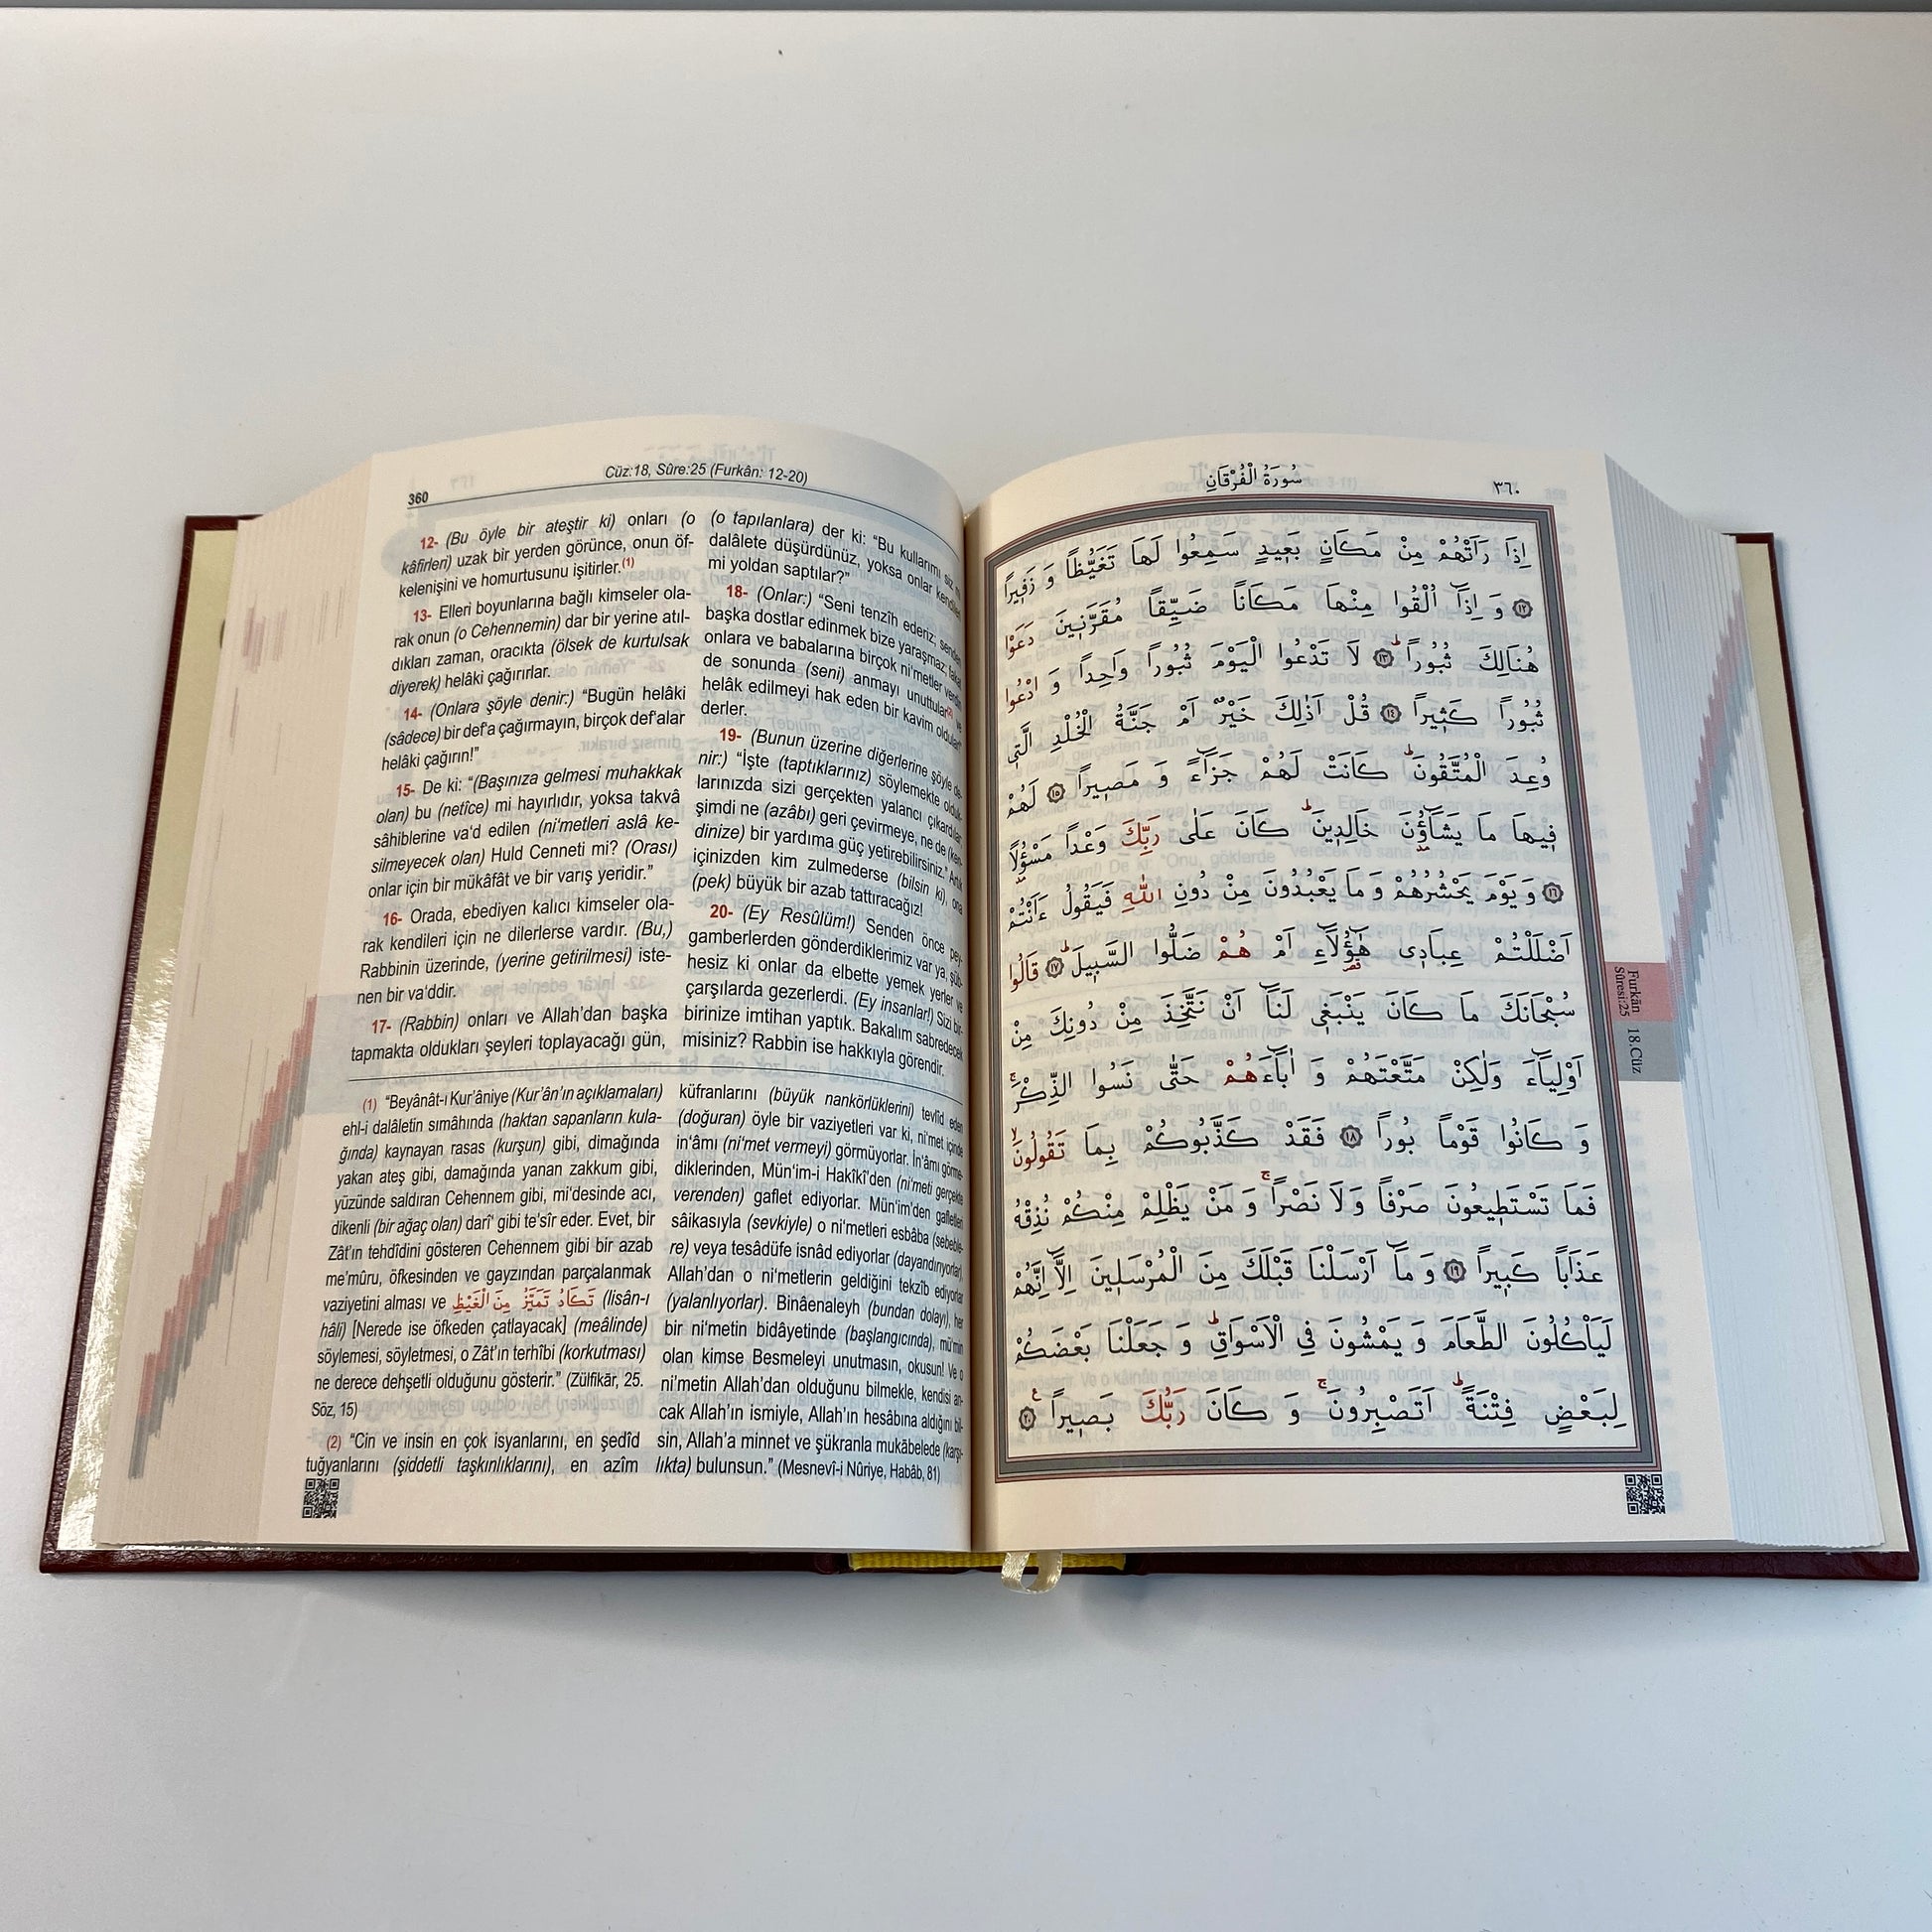 360
Cüz:18, Sûre:25 (Furkân: 12-20)
12- (Bu öyle bir ateştir ki) onları (o
kâfirleri) uzak bir yerden görünce, onun öf-
kelenişini ve homurtusunu işitirler.(1)
13- Elleri boyunlarına bağlı kimseler ola-
rak onun (o Cehennemin) dar bir yerine atıl-
dıkları zaman, oracıkta (ölsek de kurtulsak
diyerek) helâki çağırırlar.
14- (Onlara şöyle denir:) “Bugün helâki
(sâdece) bir def'a çağırmayın, birçok def'alar
helâki çağırın!”
15- De ki: “(Başınıza gelmesi muhakkak
olan) bu (netîce) mi hayırlıdır, yoksa takvâ
sâhiblerine va'd edilen (ni'metleri aslâ ke-
silmeyecek olan) Huld Cenneti mi? (Orası)
onlar için bir mükâfât ve bir varış yeridir.”
16- Orada, ebediyen kalıcı kimseler ola-
rak kendileri için ne dilerlerse vardır. (Bu,)
Rabbinin üzerinde, (yerine getirilmesi) iste-
nen bir va'ddir.
17- (Rabbin) onları ve Allah'dan başka
tapmakta oldukları şeyleri toplayacağı gün,
(o tapılanlara) der ki: “Bu kullarımı siz mi
dalâlete düşürdünüz, yoksa onlar kendileri
mi yoldan saptılar?”
18- (Onlar:) “Seni tenzîh ederiz; senden
başka dostlar edinmek bize yaraşmaz; fakat
onlara ve babalarına birçok ni'metler verdin
de sonunda (seni) anmayı unuttular(2) ve
helâk edilmeyi hak eden bir kavim oldular”
derler.
19- (Bunun üzerine diğerlerine şöyle de-
nir:) “İşte (taptıklarınız) söylemekte olduk-
larınızda sizi gerçekten yalancı çıkardılar,
şimdi ne (azâbı) geri çevirmeye, ne de (ken-
dinize) bir yardıma güç yetirebilirsiniz.” Artık
içinizden kim zulmederse (bilsin ki), ona
(pek) büyük bir azab tattıracağız!
20- (Ey Resûlüm!) Senden önce pey-
gamberlerden gönderdiklerimiz var ya, şüb-
hesiz ki onlar da elbette yemek yerler ve
çarşılarda gezerlerdi. (Ey insanlar!) Sizi bir-
birinize imtihan yaptık. Bakalım sabredecek
misiniz? Rabbin ise hakkıyla görendir.
(1) “Beyânât-ı Kur'âniye (Kur'ân'ın açıklamaları)
ehl-i dalâletin sımâhında (haktan sapanların kula-
ğında) kaynayan rasas (kurşun) gibi, dimağında
yakan ateş gibi, damağında yanan zakkum gibi,
yüzünde saldıran Cehennem gibi, mi'desinde acı,
dikenli (bir ağaç olan) darî' gibi te'sîr eder. Evet, bir
Zât'ın tehdîdini gösteren Cehennem gibi bir azab
me'mûru, öfkesinden ve gayzından parçalanmak
vaziyetini alması ve تَكَادُ تَمَيَّزُ مِنَ الْغَيْظِ (lisân-ı
hâli) [Nerede ise öfkeden çatlayacak] (meâlinde)
söylemesi, söyletmesi, o Zât'ın terhîbi (korkutması)
ne derece dehşetli olduğunu gösterir.” (Zülfikār, 25.
Söz, 15)
(2) “Cin ve insin en çok isyanlarını, en şedîd
tuğyanlarını (şiddetli taşkınlıklarını), en azîm
küfranlarını (büyük nankörlüklerini) tevlîd eden
(doğuran) öyle bir vaziyetleri var ki, ni'met içinde
in'âmı (ni'met vermeyi) görmüyorlar. İn'âmı görme-
diklerinden, Mün'im-i Hakîkî'den (ni'meti gerçekte
verenden) gaflet ediyorlar. Mün'im'den gafletleri
sâikasıyla (sevkiyle) o ni'metleri esbâba (sebeble-
re) veya tesâdüfe isnâd ediyorlar (dayandırıyorlar),
Allah'dan o ni'metlerin geldiğini tekzîb ediyorlar
(yalanlıyorlar). Binâenaleyh (bundan dolayı), her
bir ni'metin bidâyetinde (başlangıcında), mü'min
olan kimse Besmeleyi unutmasın, okusun! Ve o
ni'metin Allah'dan olduğunu bilmekle, kendisi an-
cak Allah'ın ismiyle, Allah'ın hesâbına aldığını bil-
sin, Allah'a minnet ve şükranla mukābelede (karşı-
lıkta) bulunsun.” (Mesnevî-i Nûriye, Habâb, 81)
سُورَةُ الْفُرْقَانِ
٣٦٠
اِذَا رَاَتْهُمْ مِنْ مَكَانٍ بَعٖيدٍ سَمِعُوا لَهَا تَغَيُّظاً وَ زَفٖيراً
﴿١٢﴾ وَ اِذَٓا اُلْقُوا مِنْهَا مَكَاناً ضَيِّقاً مُقَرَّنٖينَ دَعَوْا
هُنَالِكَ ثُبُوراًۜ ﴿١٣﴾ لَا تَدْعُوا الْيَوْمَ ثُبُوراً وَاحِداً وَ ادْعُوا
ثُبُوراً كَثٖيراً ﴿١٤﴾ قُلْ اَذٰلِكَ خَيْرٌ اَمْ جَنَّةُ الْخُلْدِ الَّتٖي
وُعِدَ الْمُتَّقُونَۜ كَانَتْ لَهُمْ جَزَٓاءً وَ مَصٖيراً ﴿١٥﴾ لَهُمْ
فٖيهَا مَا يَشَٓاؤُ۫نَ خَالِدٖينَۜ كَانَ عَلٰى رَبِّكَ وَعْداً مَسْؤُ۫لاً
﴿١٦﴾ وَ يَوْمَ يَحْشُرُهُمْ وَ مَا يَعْبُدُونَ مِنْ دُونِ اللّٰهِ فَيَقُولُ ءَاَنْتُمْ
اَضْلَلْتُمْ عِبَادٖى هٰٓؤُ۬لَٓاءِ اَمْ هُمْ ضَلُّوا السَّبٖيلَۜ ﴿١٧﴾ قَالُوا
سُبْحَانَكَ مَا كَانَ يَنْبَغٖى لَنَٓا اَنْ نَتَّخِذَ مِنْ دُونِكَ مِنْ
اَوْلِيَٓاءَ وَلٰكِنْ مَتَّعْتَهُمْ وَ اٰبَٓاءَهُمْ حَتّٰى نَسُوا الذِّكْرَۚ
وَ كَانُوا قَوْماً بُوراً ﴿١٨﴾ فَقَدْ كَذَّبُوكُمْ بِمَا تَقُولُونَۙ
فَمَا تَسْتَطٖيعُونَ صَرْفاً وَ لَا نَصْراًۚ وَ مَنْ يَظْلِمْ مِنْكُمْ نُذِقْهُ
عَذَاباً كَبٖيراً ﴿١٩﴾ وَ مَٓا اَرْسَلْنَا قَبْلَكَ مِنَ الْمُرْسَلٖينَ اِلَّٓا اِنَّهُمْ
لَيَأْكُلُونَ الطَّعَامَ وَ يَمْشُونَ فِي الْاَسْوَاقِۜ وَ جَعَلْنَا بَعْضَكُمْ
لِبَعْضٍ فِتْنَةًۜ اَتَصْبِرُونَۚ وَ كَانَ رَبُّكَ بَصٖيراً ﴿٢٠﴾
Furkân
Sûresi:25
18.Cüz